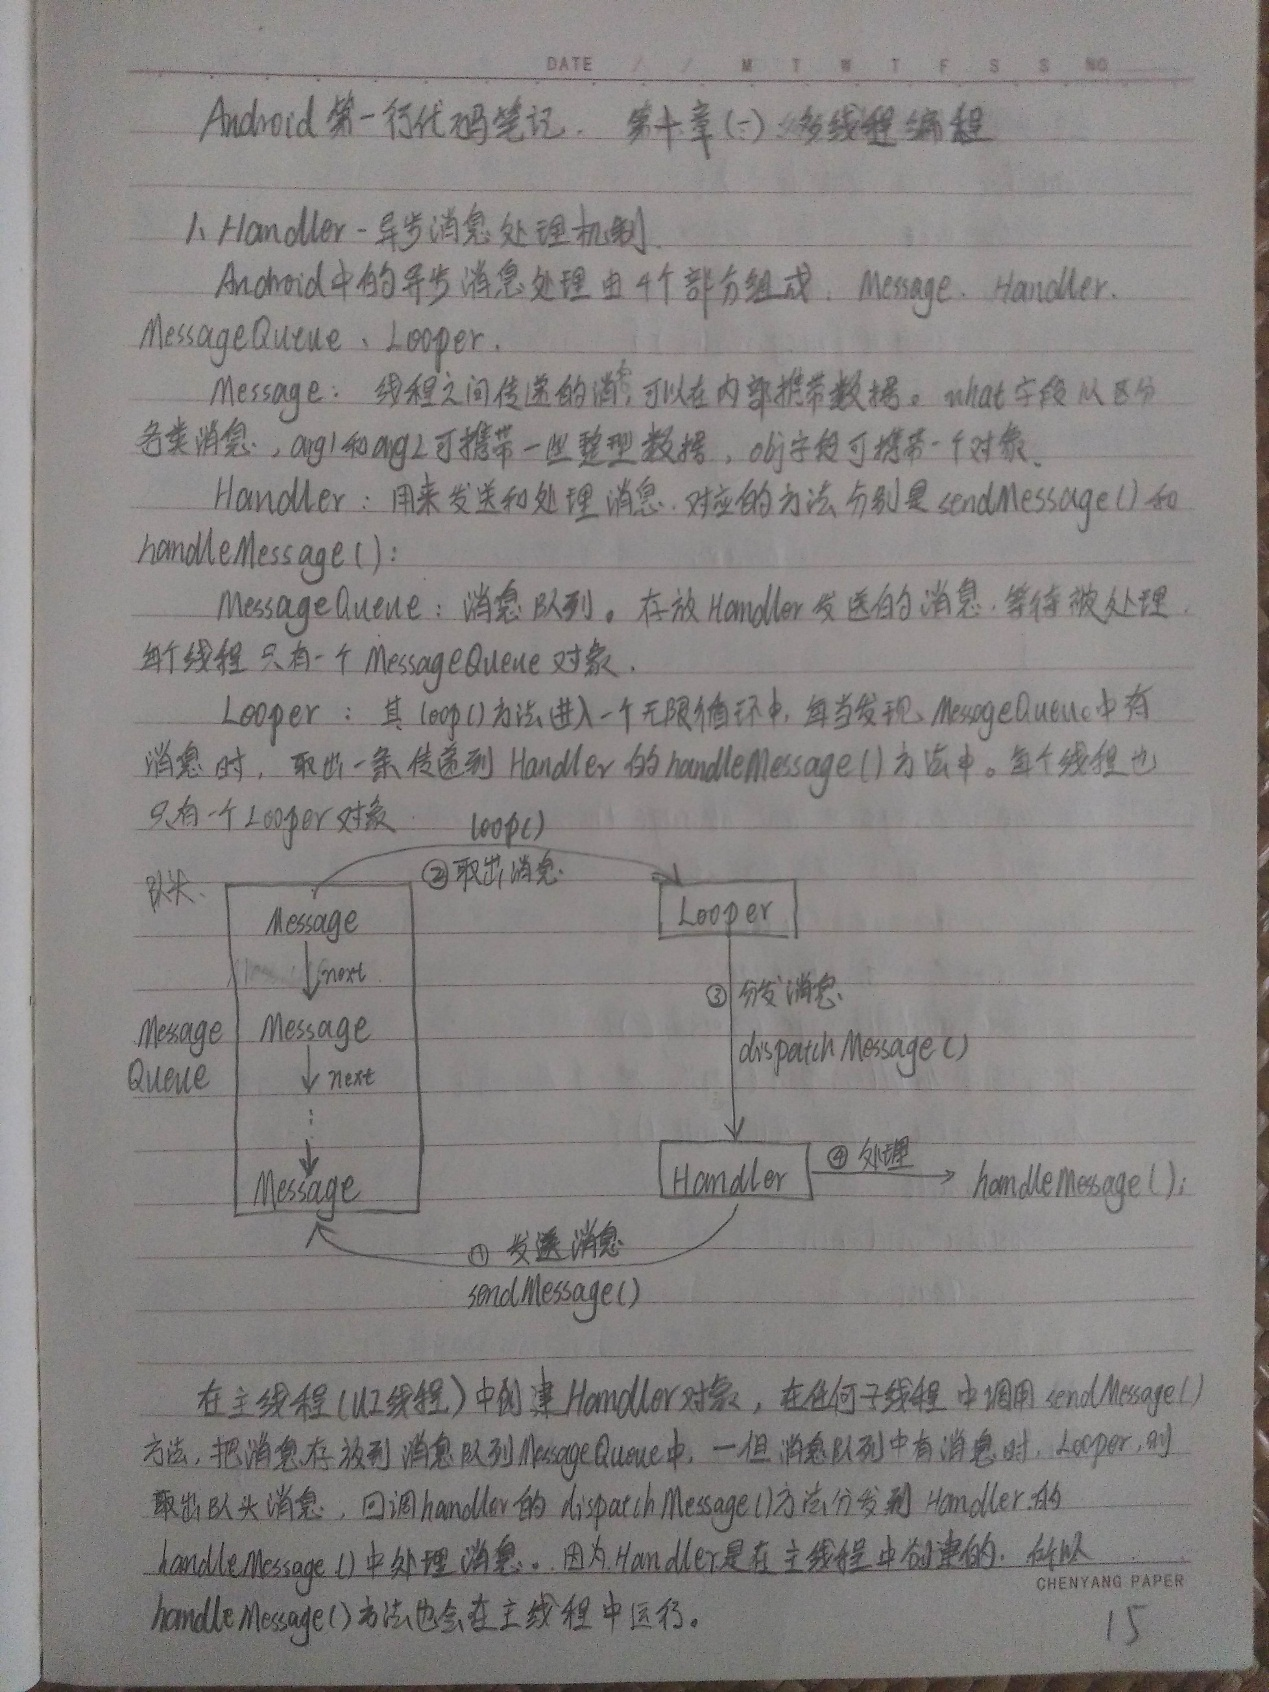 DATE / / M T W T F S S NO
Android第一行代码笔记. 第十章(一) 多线程编程
1、Handler-异步消息处理机制
Android中的异步消息处理由4个部分组成. Message、Handler.
MessageQueue、Looper.
Message: 线程之间传递的消息,可以在内部携带数据。what字段以区分
各类消息,arg1和arg2可携带一些整型数据,obj字段可携带一个对象.
Handler: 用来发送和处理消息.对应的方法分别是sendMessage()和
handleMessage():
MessageQueue: 消息队列。存放Handler发送的消息.等待被处理.
每个线程只有一个MessageQueue对象.
Looper: 其loop()方法进入一个无限循环中,每当发现MessageQueue中有
消息时,取出一条传递到Handler的handleMessage()方法中。每个线程也
只有一个Looper对象
loop()
②取出消息
队头.
Message
Looper
next
③分发消息
Message
Queue
Message
dispatchMessage()
next
Message
Handler
④处理
handleMessage();
①发送消息
sendMessage()
在主线程(UI线程)中创建Handler对象,在任何子线程中调用sendMessage()
方法,把消息存放到消息队列MessageQueue中,一但消息队列中有消息时,Looper则
取出队头消息,回调handler的dispatchMessage()方法分发到Handler的
handleMessage()中处理消息。因为Handler是在主线程中创建的,所以
CHENYANG PAPER
handleMessage()方法也会在主线程中运行。
15